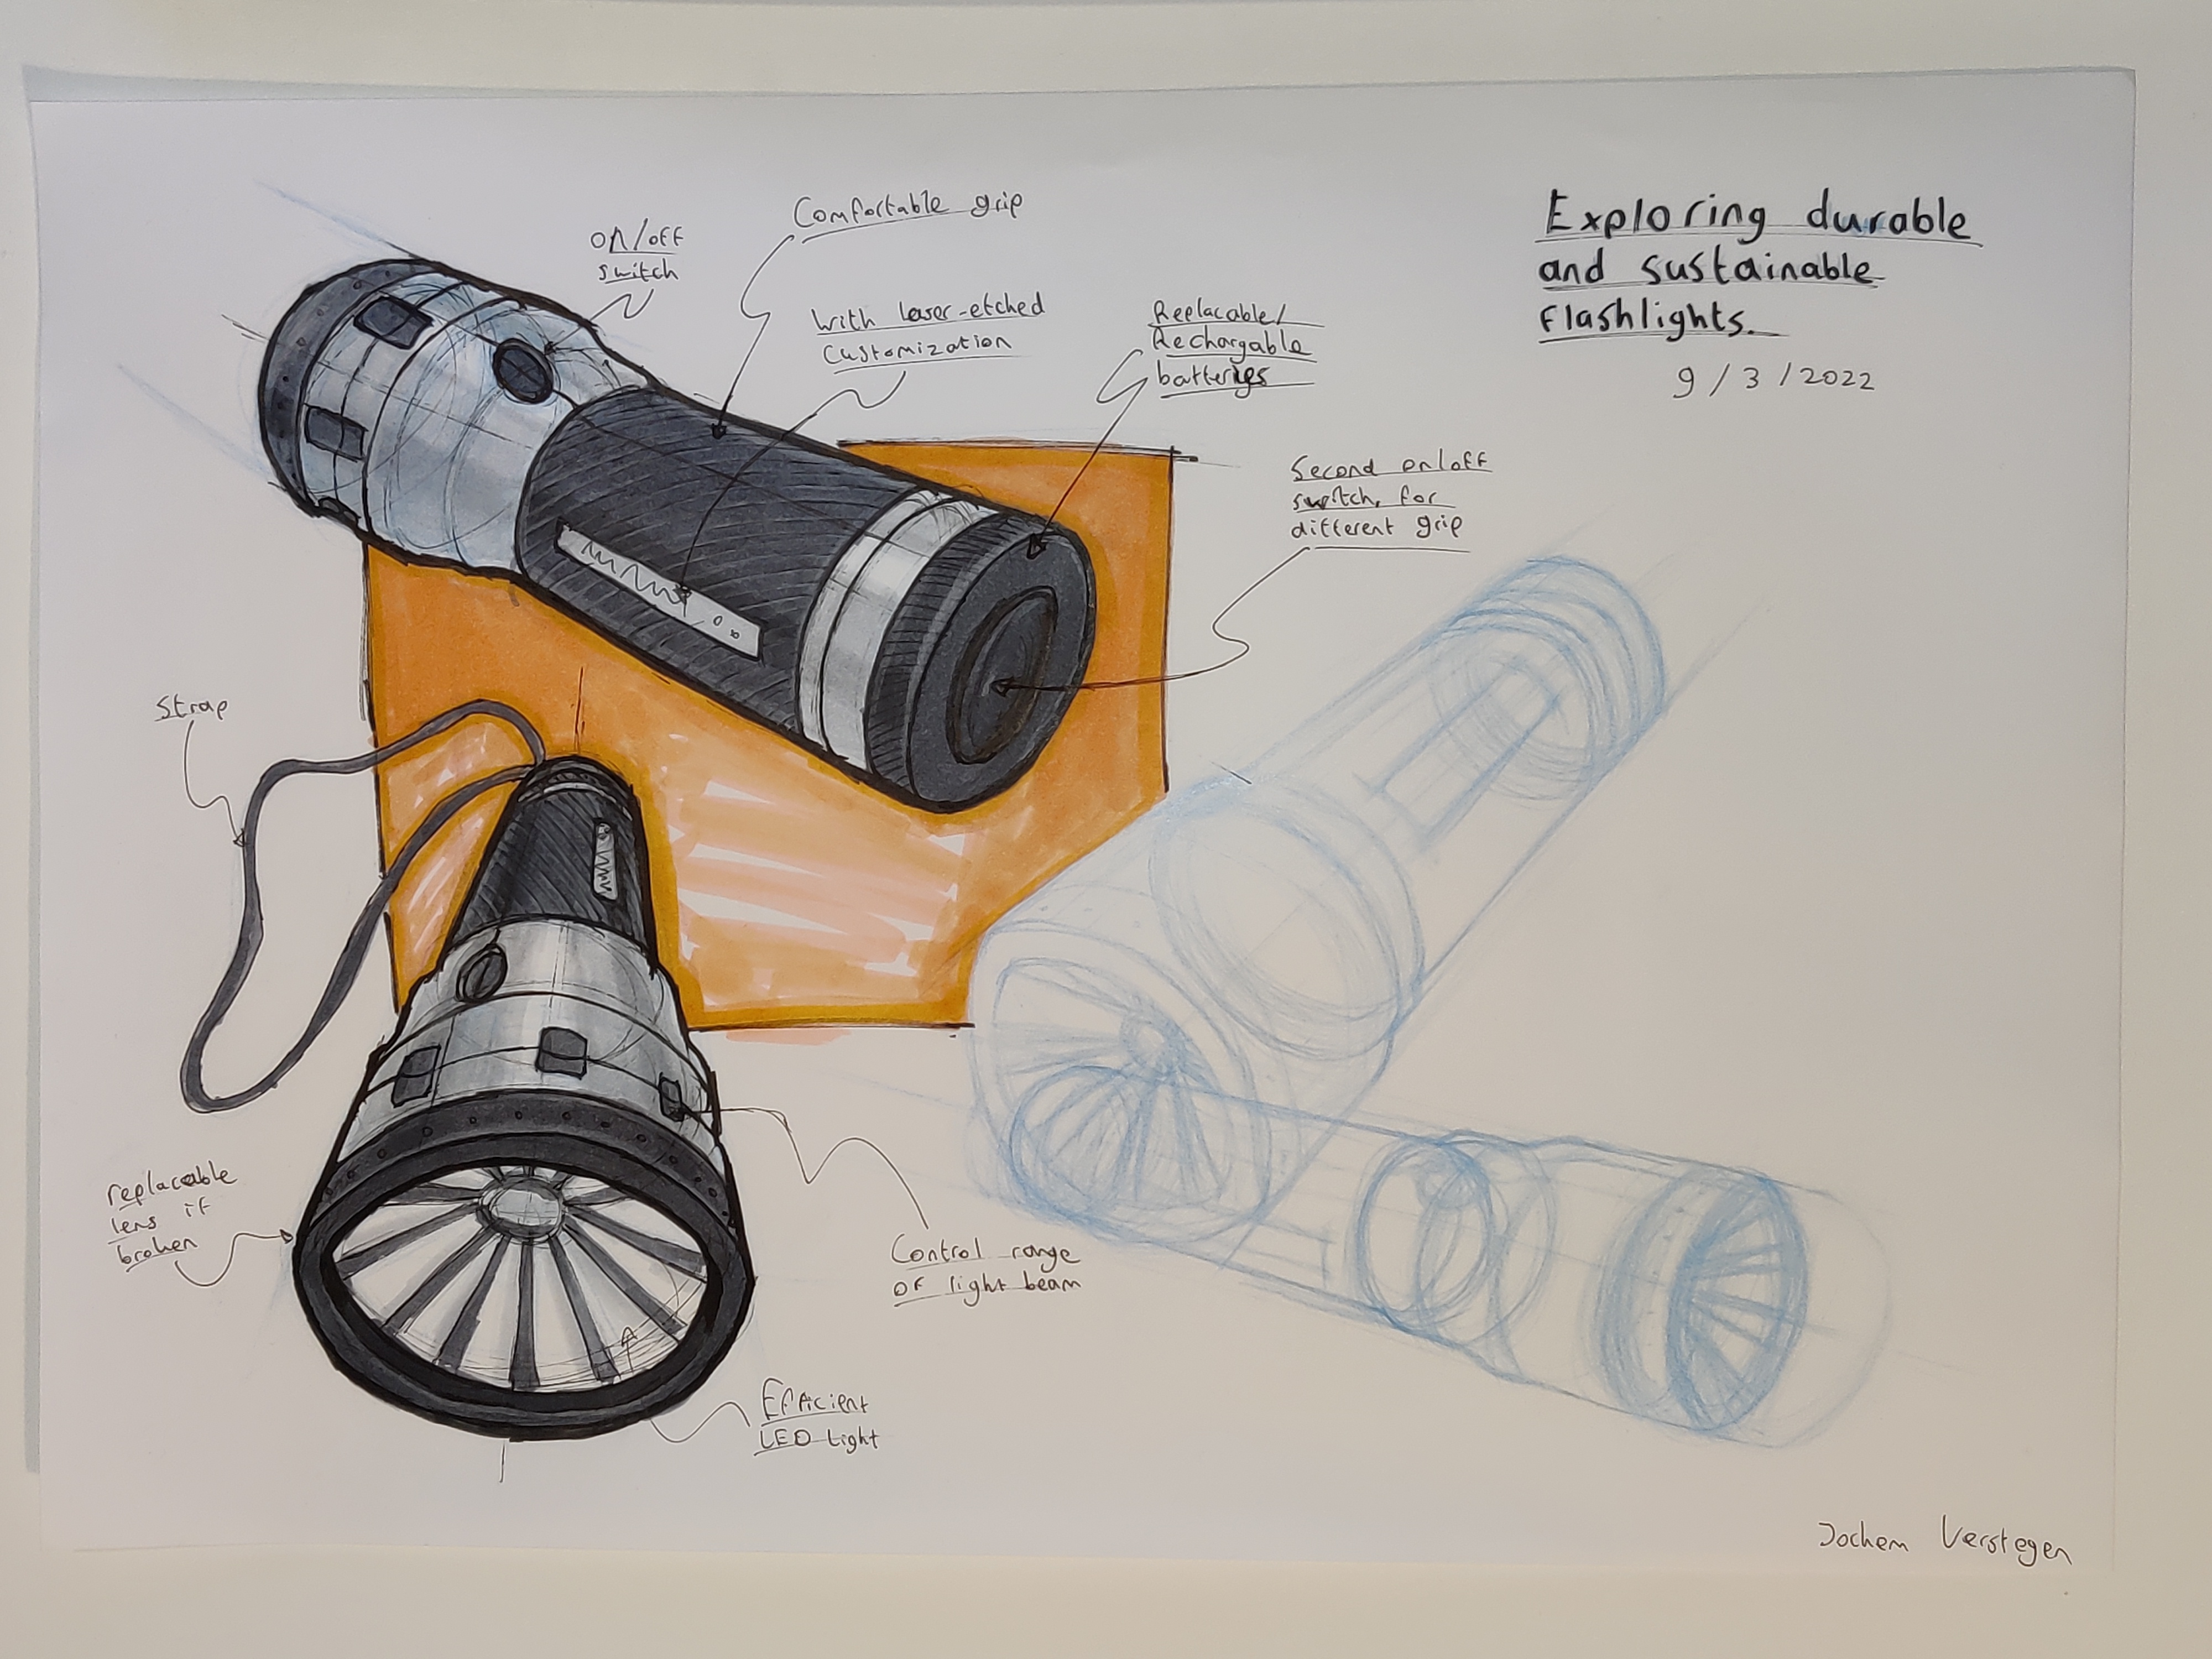 Exploring durable
and sustainable
flashlights.
9 / 3 / 2022
Comfortable grip
on/off
switch
With laser-etched
Customization
Replacable/
Rechargable
batteries
Second on/off
switch, for
different grip
Strap
replacable
lens if
broken
Control range
of light beam
Efficient
LED Light
Jochem Verstegen